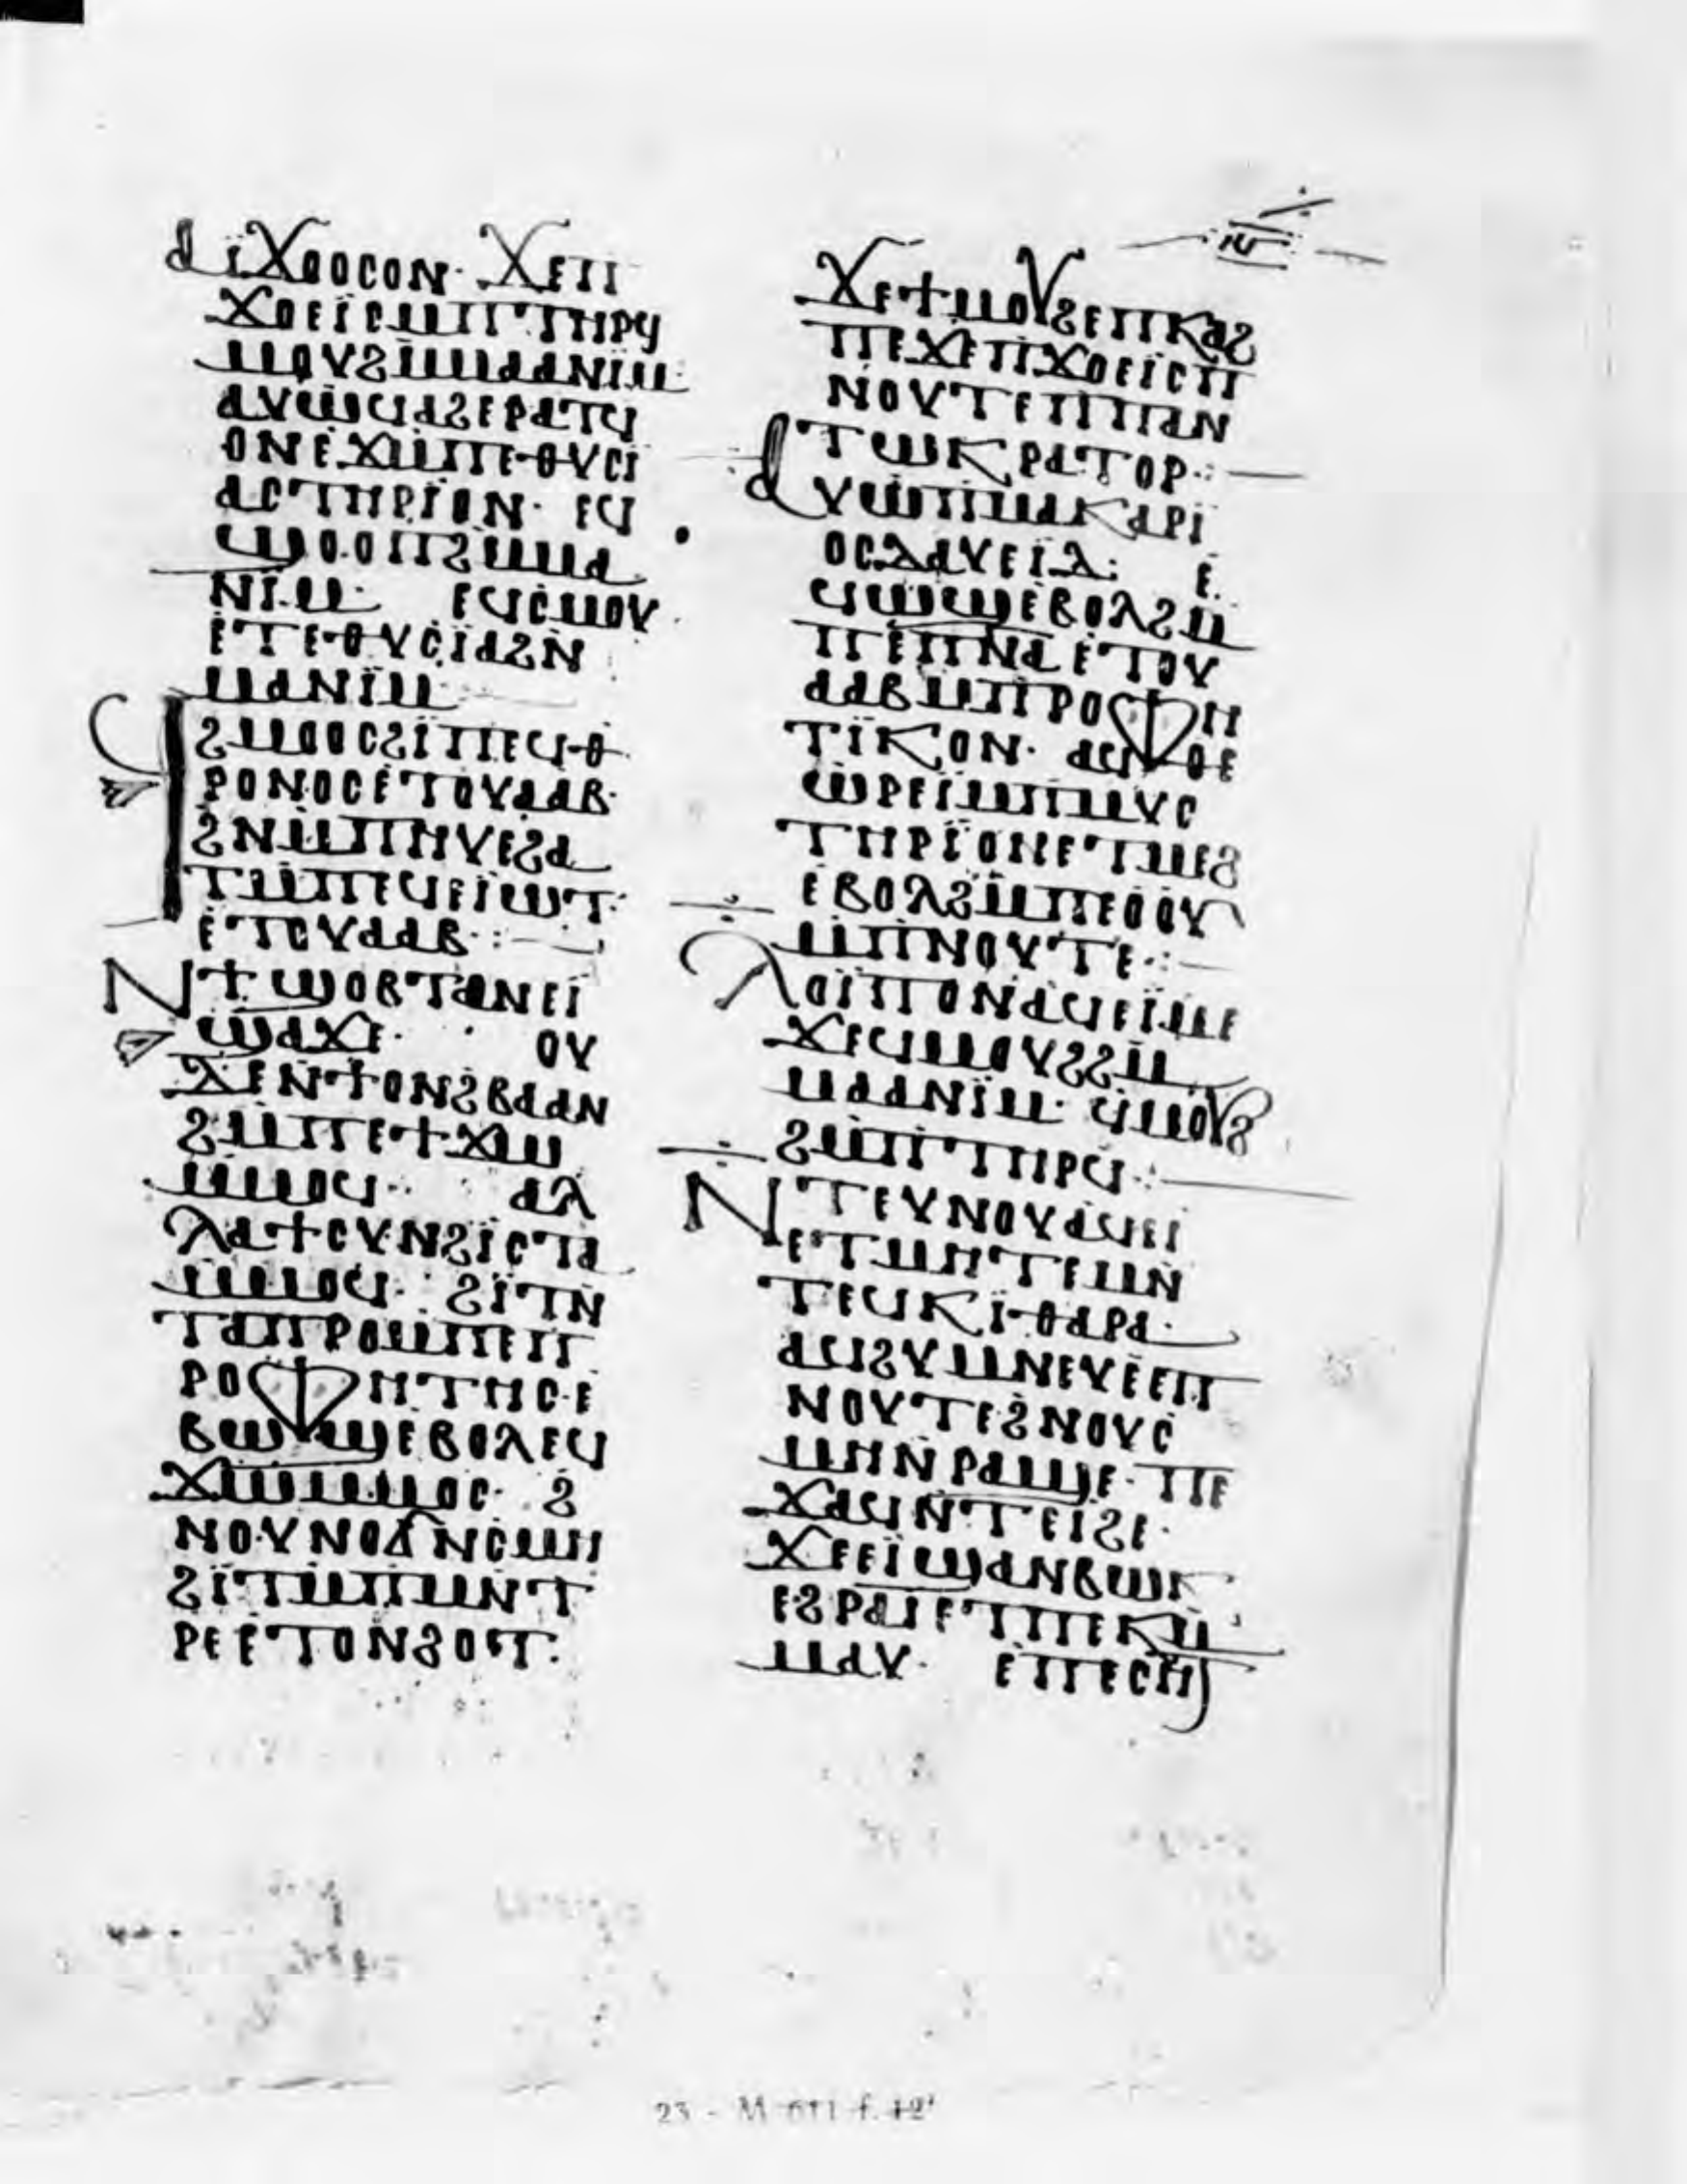 ⲁⲓϫⲟⲟⲥⲟⲛ· ϫⲉⲡ
ϫⲟⲉⲓⲥⲙⲡⲧⲏⲣϥ
ⲙⲟⲩϩⲙⲙⲁⲁⲛⲓⲙ·
ⲁⲩⲱϥⲁϩⲉⲣⲁⲧϥ
ⲟⲛⲉϫⲙⲡⲉⲑⲩⲥⲓ
ⲁⲥⲧⲏⲣⲓⲟⲛ· ⲉϥ
ϣⲟⲟⲡϩⲙⲙⲁ
ⲛⲓⲙ· ⲉϥⲥⲙⲟⲩ
ⲉⲧⲉⲑⲩⲥⲓⲁϩⲛ
ⲙⲁⲛⲓⲙ·
ϥϩⲙⲟⲟⲥϩⲓⲡⲉϥⲑ
ⲣⲟⲛⲟⲥⲉⲧⲟⲩⲁⲁⲃ·
ϩⲛⲙⲡⲏⲩⲉϩⲁ
ⲧⲙⲡⲉϥⲉⲓⲱⲧ·
ⲉⲧⲟⲩⲁⲁⲃ·:—
ⲛϯϣⲟⲃⲧⲁⲛⲉⲓ
ϣⲁϫⲉ· ⲟⲩ
ⲇⲉⲛϯⲟⲛϩⲃⲁⲁⲛ
ϩⲙⲡⲉϯϫⲱ
ⲙⲙⲟϥ·· ⲁⲗ
ⲗⲁϯⲥⲩⲛϩⲓⲥⲧⲁ
ⲙⲙⲟϥ· ϩⲓⲧⲛ
ⲧⲁⲡⲣⲟⲙⲡⲉⲡ
ⲣⲟⲫⲏⲧⲏⲥ·ⲉ
ϥⲱϣⲉⲃⲟⲗⲉϥ
ϫⲱⲙⲙⲟⲥ· ϩ
ⲛⲟⲩⲛⲟϭⲛⲥⲙⲏ
ϩⲓⲧⲙⲡⲙⲛⲧ
ⲣⲉⲉⲧⲟⲛϩⲟⲧ:
ϫⲉϯⲙⲟⲩϩⲉⲡⲕⲁϩ
ⲡⲉϫⲉⲡϫⲟⲉⲓⲥⲡ
ⲛⲟⲩⲧⲉⲡⲡⲁⲛ
ⲧⲱⲕⲣⲁⲧⲟⲣ·:—
ⲁⲩⲱⲡⲙⲁⲕⲁⲣⲓ
ⲟⲥⲇⲁⲩⲉⲓⲇ: ⲉ
ϥⲱϣⲉⲃⲟⲗϩⲙ
ⲡⲉⲡⲛⲁⲉⲧⲟⲩ
ⲁⲁⲃⲙⲡⲣⲟⲫⲏ
ⲧⲓⲕⲟⲛ· ⲁϥⲑⲉ
ⲱⲣⲉⲓⲙⲡⲙⲩⲥ
ⲧⲏⲣⲓⲟⲛⲉⲧⲙⲉϩ
ⲉⲃⲟⲗϩⲙⲡⲉⲟⲟⲩ
ⲙⲡⲛⲟⲩⲧⲉ·:—
ⲗⲟⲓⲡⲟⲛⲁϥⲉⲓⲙⲉ
ϫⲉϥⲙⲟⲩϩϩⲙ
ⲙⲁⲁⲛⲓⲙ· ϥⲙⲟⲩϩ
ϩⲙⲡⲧⲏⲣϥ·:—
ⲛⲧⲉⲩⲛⲟⲩⲁϥϥⲓ
ⲉⲧⲙⲏⲧⲉⲙⲛ
ⲧⲉϥⲕⲓⲑⲁⲣⲁ·
ⲁϥϩⲩⲙⲛⲉⲩⲉⲉⲡ
ⲛⲟⲩⲧⲉϩⲛⲟⲩⲥ
ⲙⲏⲛⲣⲁϣⲉ· ⲡⲉ
ϫⲁϥⲛⲧⲉⲓϩⲉ·
ϫⲉⲉⲓϣⲁⲛⲃⲱⲕ
ⲉϩⲣⲁⲓⲉⲧⲡⲉⲕⲙ
ⲙⲁⲩ· ⲉⲡⲉⲥⲏⲧ
23 - M 611 f. 12ʳ